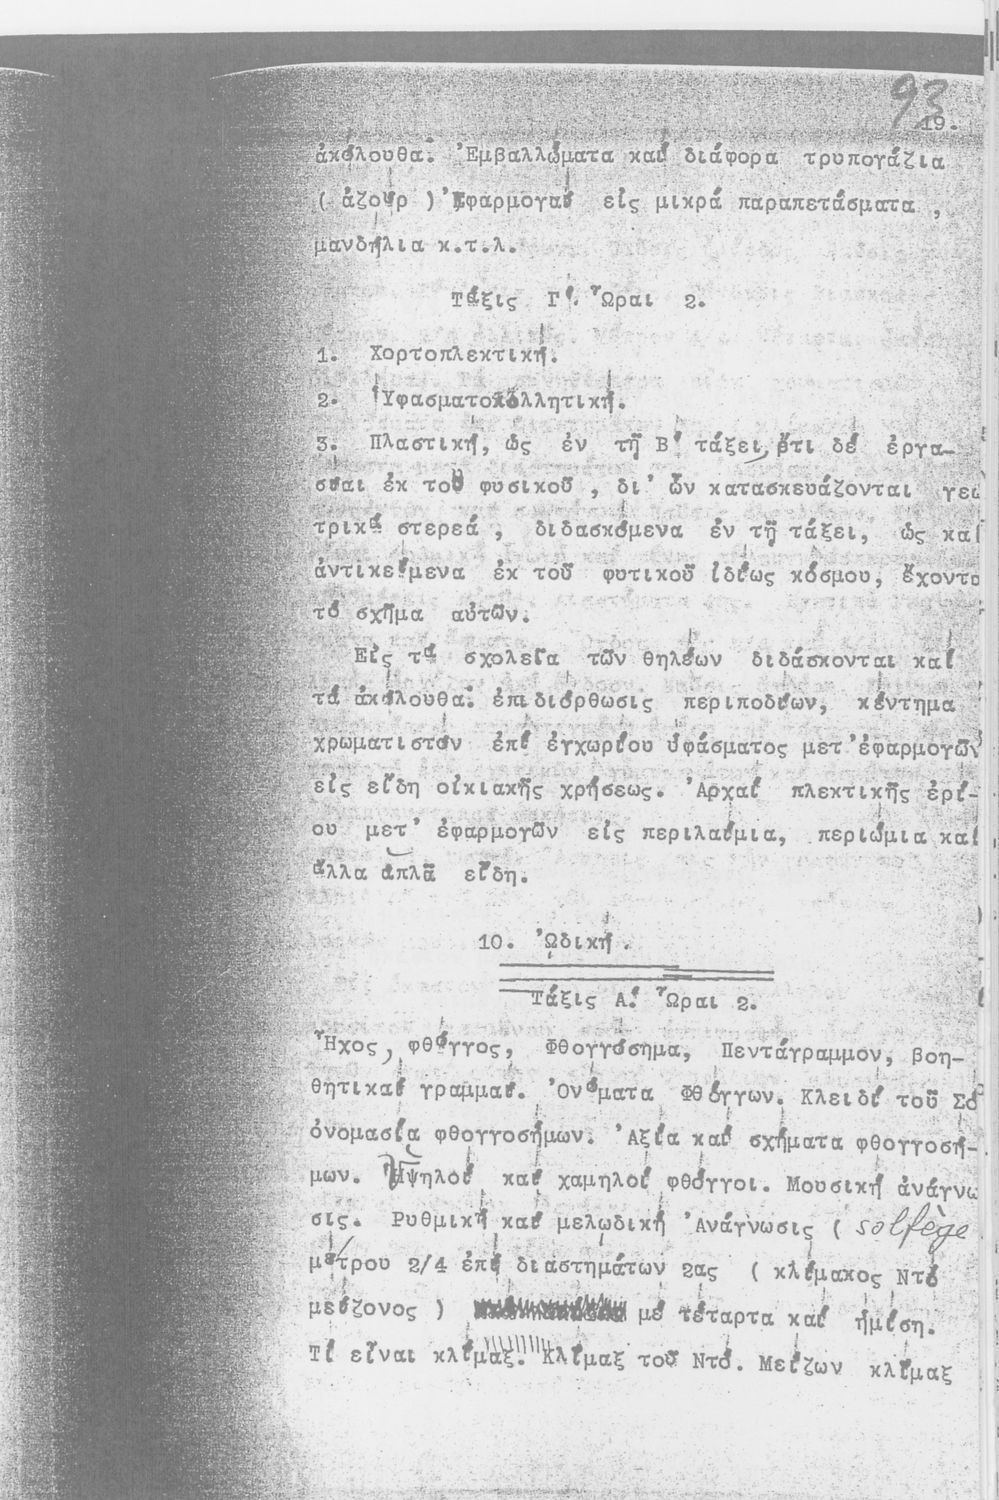 93
19.
ἀκόλουθα: Ἐμβαλλώματα καί διάφορα τρυπογάζια
( ἀζούρ ) Ἐφαρμογαί εἰς μικρά παραπετάσματα ,
μανδήλια κ.τ.λ.
Τάξις Γ΄. Ὧραι 2.
1. Χορτοπλεκτική.
2. Ὑφασματοκολλητική.
3. Πλαστική, ὡς ἐν τῇ Β΄ τάξει, ὅτι δέ ἐργα-
σίαι ἐκ τοῦ φυσικοῦ , δι' ὧν κατασκευάζονται γεω
τρικά στερεά , διδασκόμενα ἐν τῇ τάξει, ὡς καί
ἀντικείμενα ἐκ τοῦ φυτικοῦ ἰδίως κόσμου, ἔχοντα
τό σχῆμα αὐτῶν.
Εἰς τά σχολεῖα τῶν θηλέων διδάσκονται καί
τά ἀκόλουθα: ἐπιδιόρθωσις περιποδίων, κέντημα
χρωματιστόν ἐπί ἐγχωρίου ὑφάσματος μετ' ἐφαρμογῶν
εἰς εἴδη οἰκιακῆς χρήσεως. Ἀρχαί πλεκτικῆς ἐρί-
ου μετ' ἐφαρμογῶν εἰς περιλαίμια, περιώμια καί
ἄλλα ἁπλᾶ εἴδη.
10. ᾨδική .
Τάξις Α΄. Ὧραι 2.
Ἦχος, φθόγγος, Φθογγόσημα, Πεντάγραμμον, βοη-
θητικαί γραμμαί. Ὀνόματα Φθόγγων. Κλειδί τοῦ Σόλ
ὀνομασία φθογγοσήμων. Ἀξία καί σχήματα φθογγοσή-
μων. Ὑψηλοί καί χαμηλοί φθόγγοι. Μουσική ἀνάγνω
σις. Ρυθμική καί μελῳδική Ἀνάγνωσις ( solfège
μέτρου 2/4 ἐπί διαστημάτων 2ας ( κλίμακος Ντό
μείζονος ) μέ τέταρτα καί ἡμίση.
Τί εἶναι κλίμαξ. Κλίμαξ τοῦ Ντό. Μείζων κλίμαξ